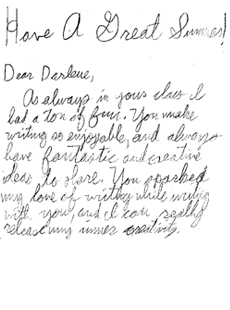 Have A Great Summer!
Dear Darlene,
As always in your class I
had a ton of fun. You make
writing so enjoyable, and always
have fantastic and creative
ideas to share. You sparked
my love of writing while writing
with you, and I can really
release my inner creativity.